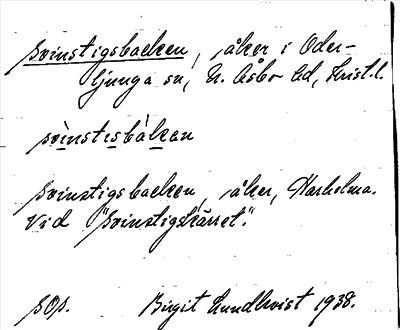 svinstigsbacken, åker i Oder-
ljunga sn, N. Åsbo hd, Krist. l.
svinstisbàkan
svinstigsbacken, åker, Harholma.
Vid "Svinstigskärret".
sop. Birgit Lundkvist 1938.